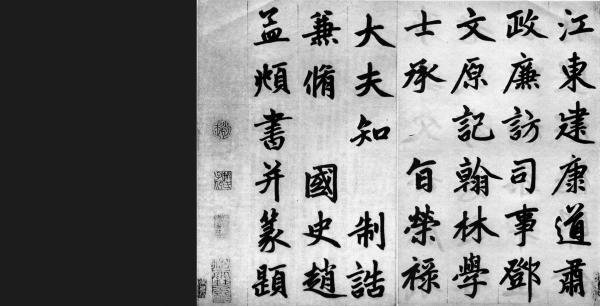 江東建康道肅
政廉訪司事鄧
文原記翰林學
士承 旨榮祿
大夫知 制誥
兼脩 國史趙
孟頫書并篆題